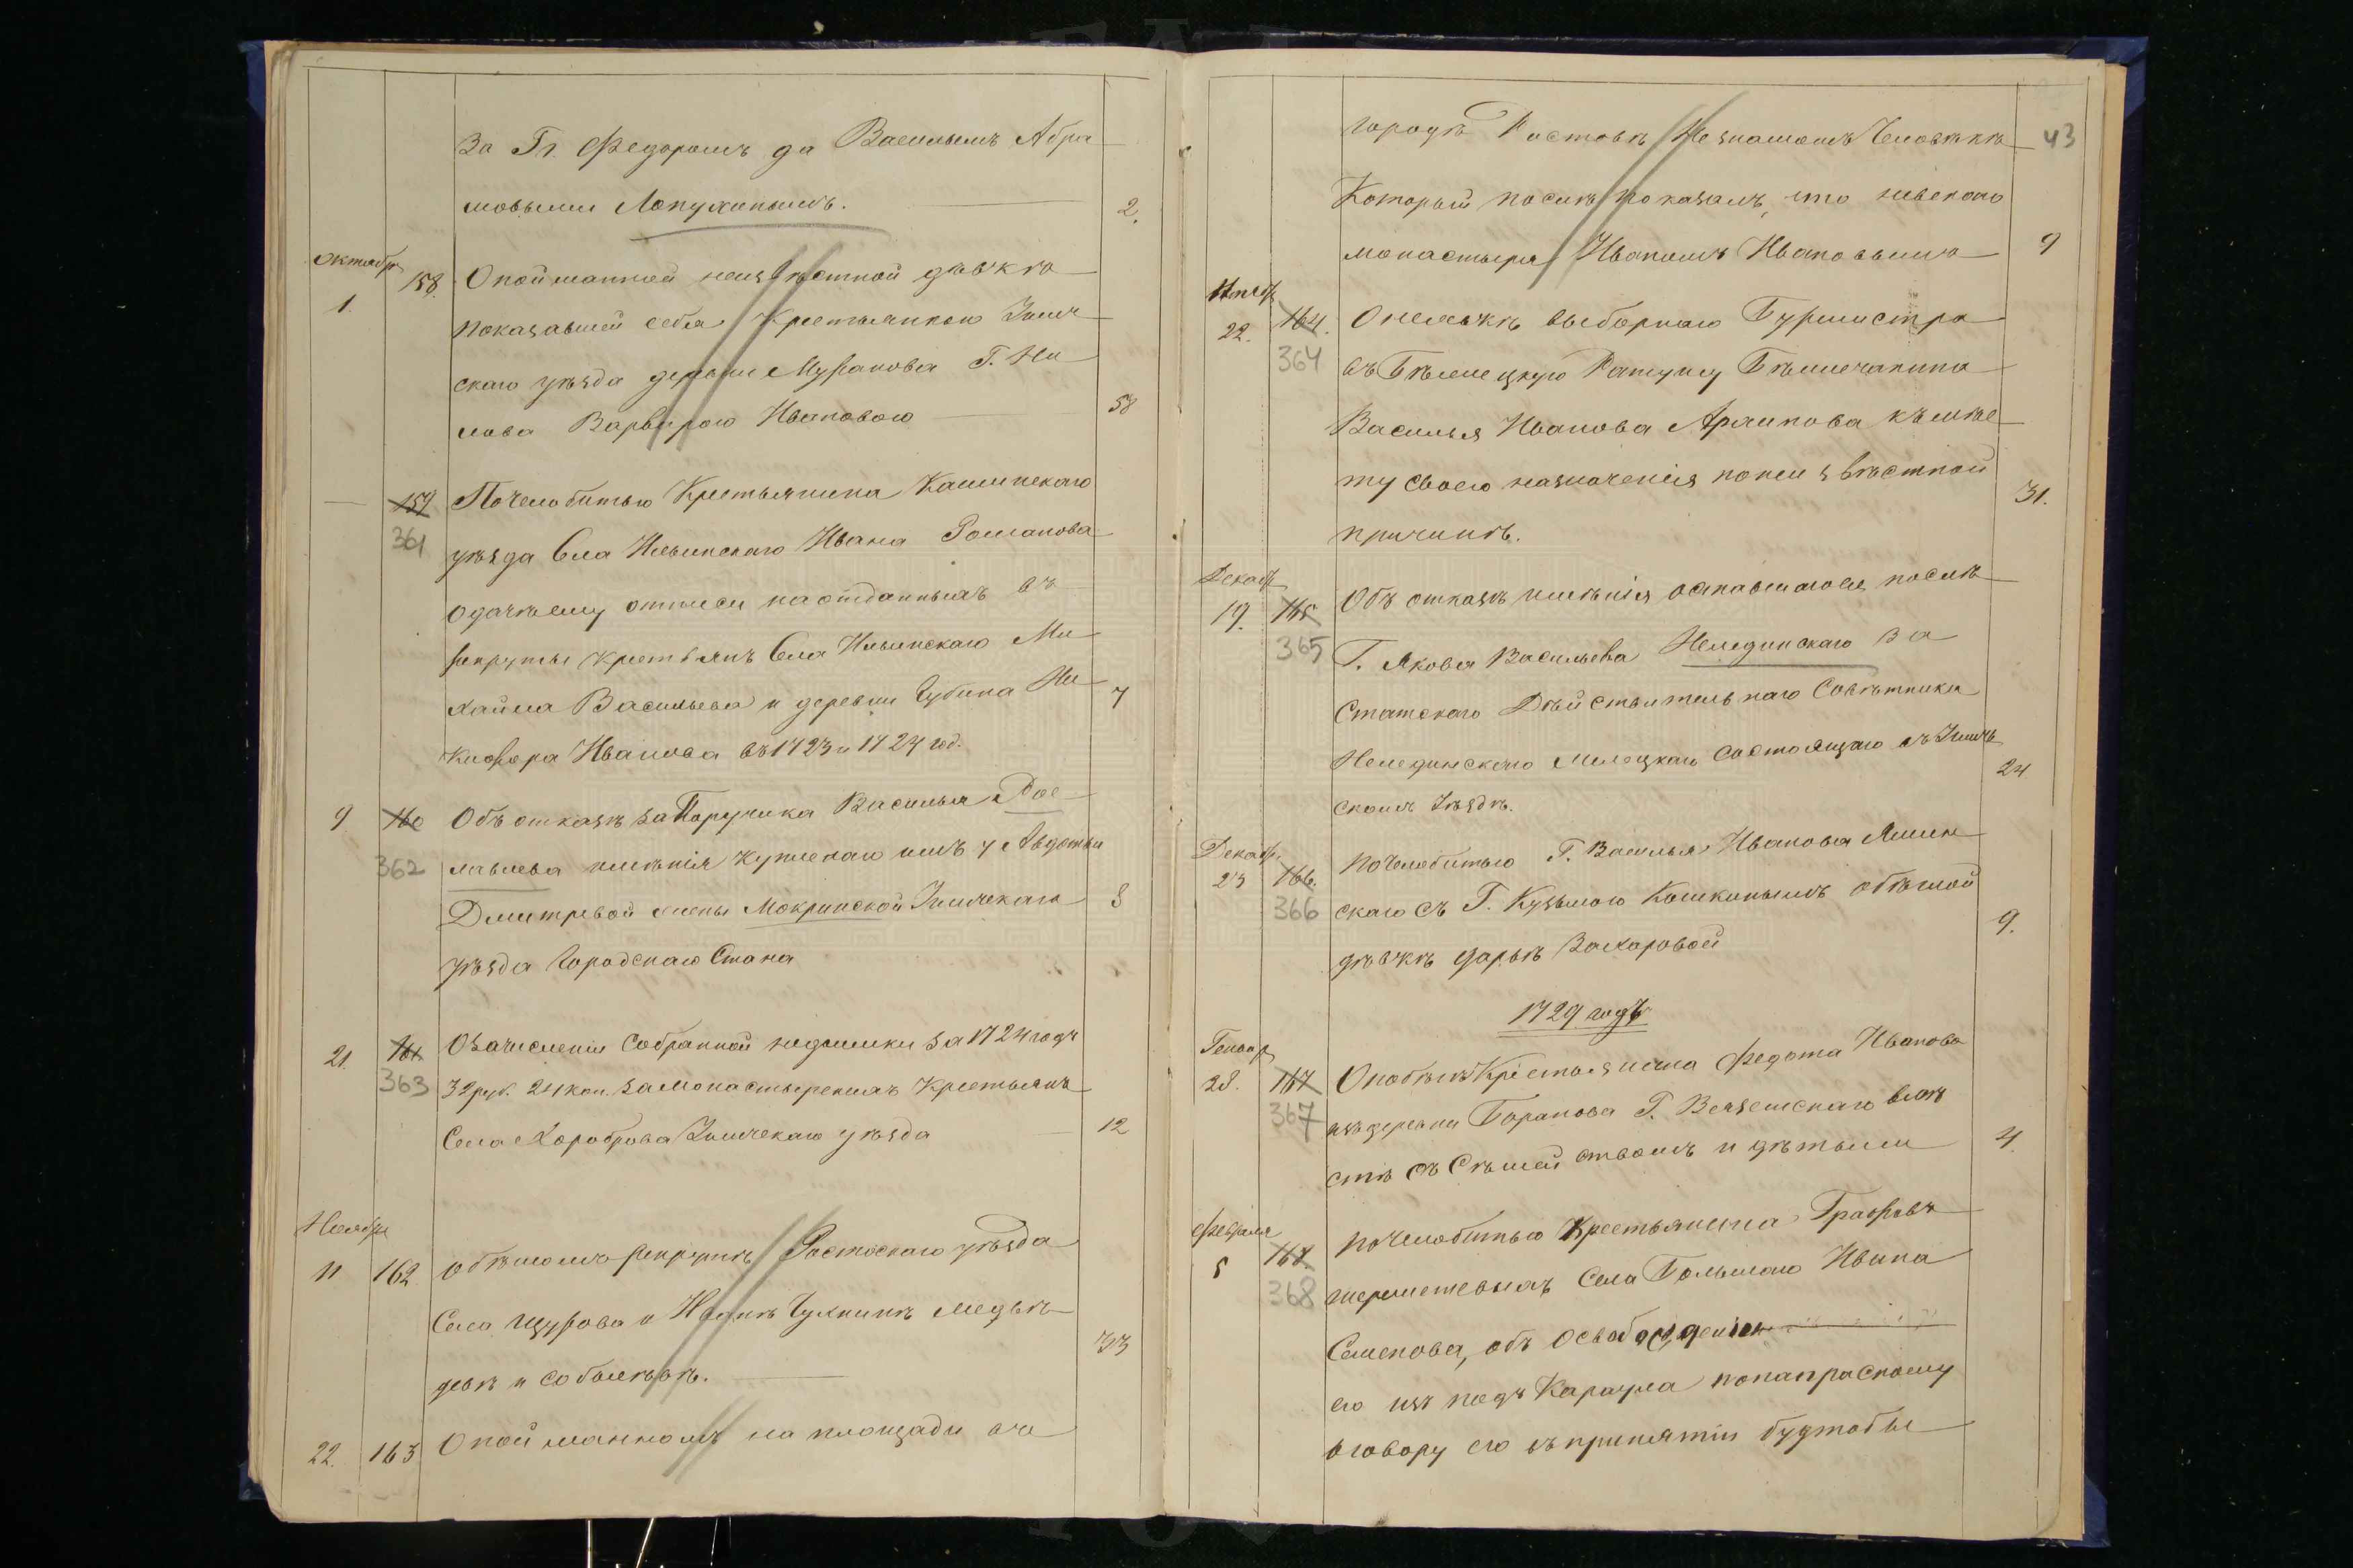 За Гг. Федоромъ да Васильемъ Абра
мовыми Лопухиными.
2.
Октябр.
1.
158.
О пойманной неизвѣстной дѣвкѣ
показавшей себя Крестьянкою Углич
скаго уѣзда деревни Муранова Г. Ни
лова Варварою Ивановою
58
159
361
По челобитью Крестьянина Кашинскаго
уѣзда Села Ильинскаго Ивана Романова
о дачѣ ему отписи на отданныхъ въ
рекруты крестьянъ Села Ильинскаго Ми
хайла Васильева и деревни Губина Ни
кифора Иванова въ 1723 и 1724 год.
7
9
160
362
Объ отказѣ за Поручика Василья Рос
лавлева имѣнія купленаго имъ у Авдотьи
Дмитревой жены Мокринской Угличскаго
уѣзда Городскаго Стана
8
21.
161
363
О зачисленіи собранной недоимки за 1724 годъ
32 руб. 24 коп. за Монастырскихъ Крестьянъ
Села Хороброва Угличскаго уѣзда
12
Ноября
11
162
О бѣгломъ рекрутѣ Ростовскаго уѣзда
Села Щурова и Медвѣ
девѣ и Соболевѣ.
33
22.
163
О пойманномъ на площади въ
городѣ Ростовѣ Незнакомъ Человѣкѣ
43
Который послѣ показалъ, что невскаго
монастыря Иваномъ Ивановымъ
9
22.
164.
364
О неявкѣ выборнаго Бурмистра
въ Бѣжецкую Ратушу Бѣжечанина
Василья Иванова Аряпова къ мѣс
ту своего назначенія по неизвѣстной
31.
причинѣ.
Декаб.
19.
165
365
Объ отказѣ имѣнія оставшагося послѣ
Г. Якова Васильева Нелединскаго за
Статскаго Дѣйствительнаго Совѣтника
Нелединскаго Мелецкаго состоящаго въ Углич
24
скомъ Уѣздѣ.
Декабр.
23
166.
366
По челобитью Г. Василья Иванова Ямин
скаго съ Г. Кузьмою Кошкинымъ о бѣглой
дѣвкѣ Дарьѣ Захаровой
9.
1729 годъ
Генвар
28.
167
367
О побѣгѣ Крестьянина Федота Иванова
изъ деревни Боранова Г. Вяземскаго вмѣ
стѣ съ Сѣмействомъ и дѣтьми
4.
Февраля
5
168
368
По челобитью Крестьянина Графовъ
шереметевыхъ Села Большаго Ивана
Семенова, объ освобожденіи
его изъ подъ Караула по напрасному
оговору его въ принятіи будтобы